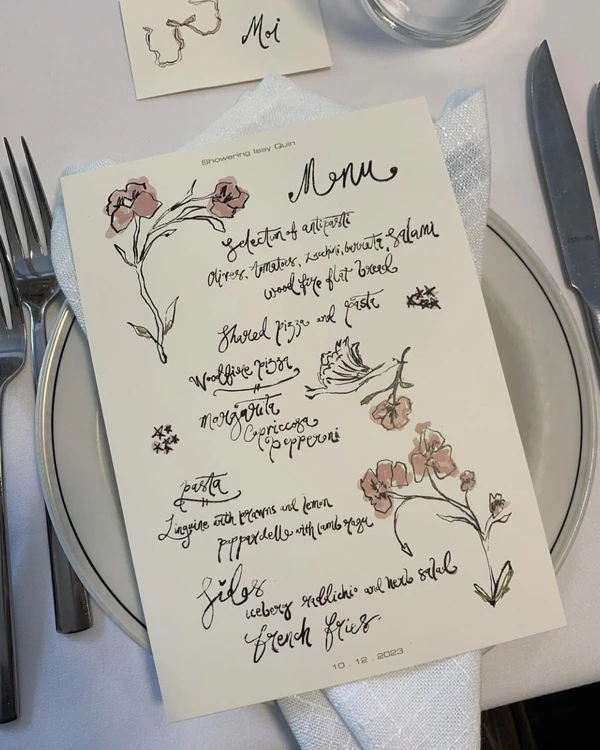 Moi
Showering Issy Quin
Menu
Selection of antipasti
Olives, tomatoes, zucchini, burrata, Salami
wood fire flat bread
Shared pizza and pasta
Woodfire pizza
Margarita
Capriccosa
Pepperoni
pasta
Linguine with prawns and lemon
pappardelle with lamb ragu
Sides
iceberg radicchio and herb salad
french fries.
10 . 12 . 2023